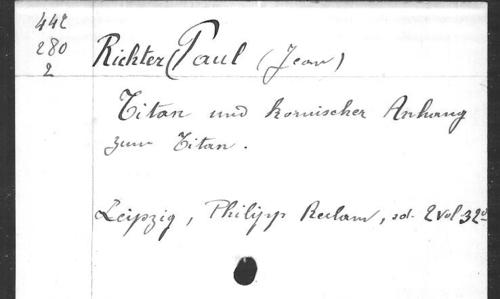 442
280
2
Richter (Paul (Jean)
Titan und komischer Anhang
zum Titan.
Leipzig, Philipp Reclam, sd. 2 vol 32º